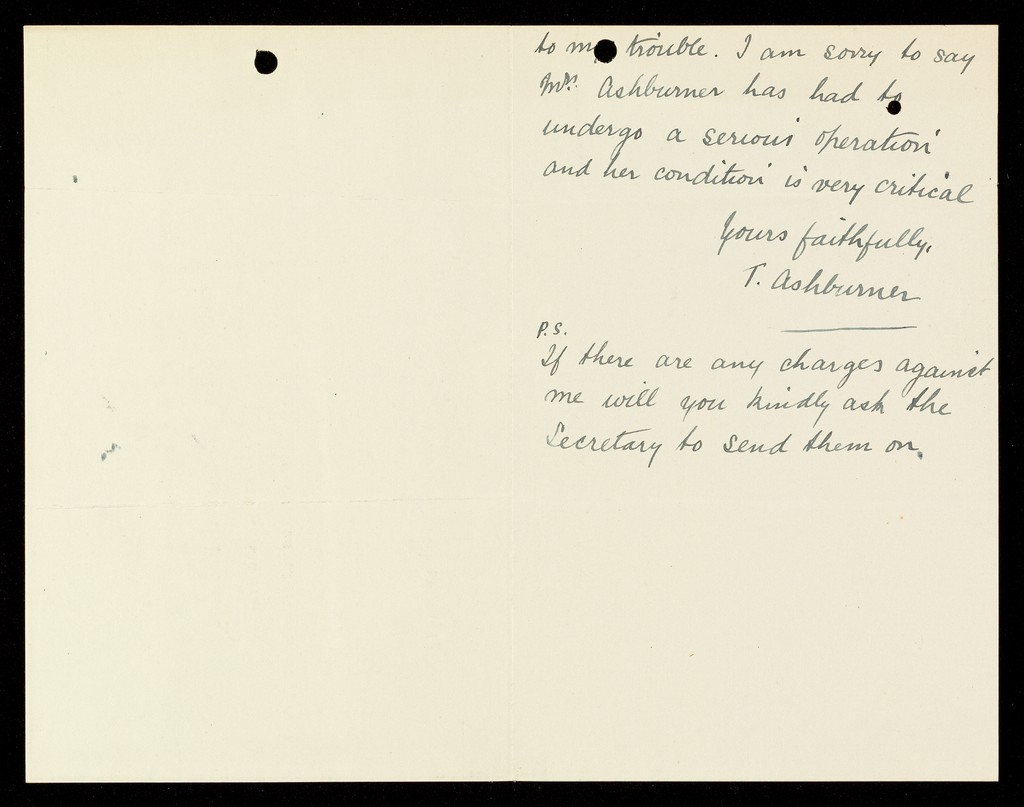 to my trouble. I am sorry to say
Mrs. Ashburner has had to
undergo a serious operation
and her condition is very critical
Yours faithfully,
T. Ashburner
P.S.
If there are any charges against
me will you kindly ask the
Secretary to send them on.